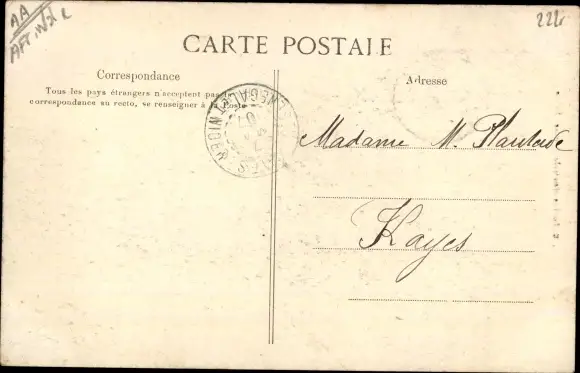 AA
224
CARTE POSTALE
Correspondance
Tous les pays étrangers n'acceptent pas la
correspondance au recto, se renseigner à la Poste
Adresse
Madame M.
Kayes